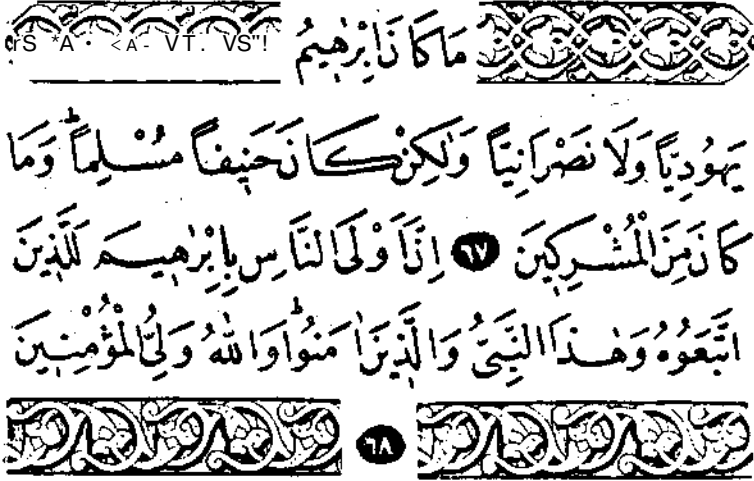 rS *A • <A- VT. VS"!
مَا كَانَ اِبْرٰه۪يمُ
يَهُودِيًّا وَلَا نَصْرَانِيًّا وَلٰكِنْ كَانَ حَن۪يفًا مُسْلِمًاۜ وَمَا
كَانَ مِنَ الْمُشْرِك۪ينَ ٦٧ اِنَّ اَوْلَى النَّاسِ بِاِبْرٰه۪يمَ لَلَّذ۪ينَ
اتَّبَعُوهُ وَهٰذَا النَّبِيُّ وَالَّذ۪ينَ اٰمَنُواۜ وَاللّٰهُ وَلِيُّ الْمُؤْمِن۪ينَ
٦٨